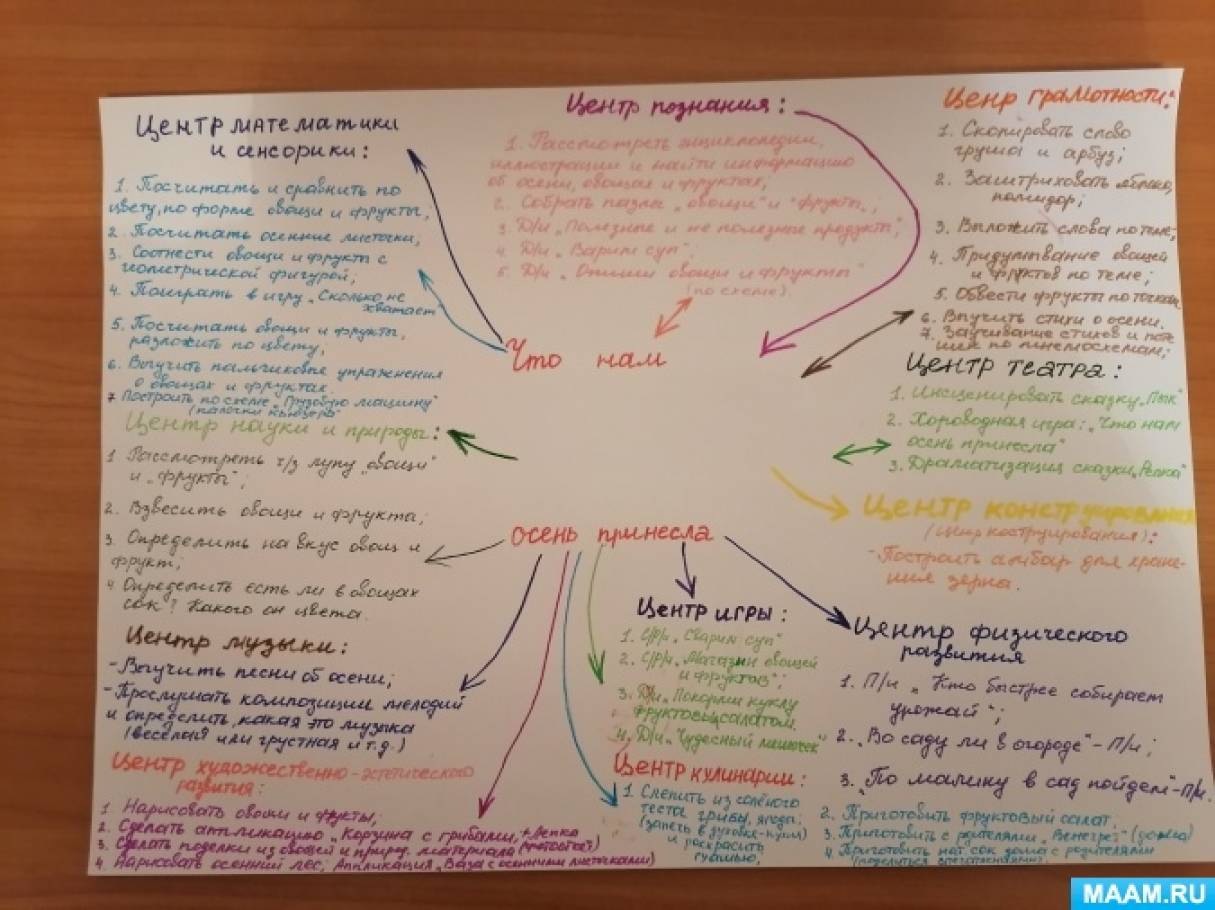 Центр математики
и сенсорики:
1. Посчитать и сравнить по
цвету, по форме овощи и фрукты;
2. Посчитать осенние листочки;
3. Соотнести овощи и фрукты с
геометрической фигурой;
4. Поиграть в игру „Сколько не
хватает"
5. Посчитать овощи и фрукты,
разложить по цвету;
6. Выучить пальчиковые упражнения
о овощах и фруктах.
7 Построить по схеме „Грузовую машину"
(палочки Кюизера"
Центр познания:
1. Рассмотреть энциклопедии,
иллюстрации и найти информацию
об осени, овощах и фруктах;
2. Собрать пазлы „овощи" и "фрукты";
3. Д/и „Полезные и не полезные продукты";
4. Д/и „Варим суп";
5. Д/и „Опиши овощи и фрукты"
(по схеме).
Ценр грамотности:
1. Скопировать слово
груша и арбуз;
2. Заштриховать яблоко,
помидор;
3. Выложить слова по теме;
4. Придумывание овощей
и фруктов по теме;
5. Обвести фрукты по точкам
6. Выучить стихи о осени.
7. Заучивание стихов и поте
шек по мнемосхемам;
Что нам
осень принесла
Центр театра:
1. Инсценировать сказку „Пык"
2. Хороводная игра: „Что нам
осень принесла"
3. Драматизация сказки „Репка"
Центр науки и природы:
1 Рассмотреть ч/з лупу „овощи"
и „фрукты";
2. Взвесить овощи и фрукта;
3. Определить на вкус овощ и
фрукт;
4. Определить есть ли в овощах
сок? Какого он цвета.
Центр конструирования
(центр коструирования):
- Построить амбар для хране-
ния зерна.
Центр музыки:
- Выучить песни об осени;
- Прослушать композиции мелодий
и определить, какая это музыка
(веселая или грустная и т.д.)
Центр игры:
1. С/р/и „Сварим суп"
2. С/р/и „Магазин овощей
и фруктов";
3. Д/и „Покорми куклу
фруктовым салатом.
4. Д/и „Чудесный мешочек"
Центр физического
развития
1. П/и „Кто быстрее собирает
урожай";
2. „Во саду ли в огороде" - П/и;
3. „По малину в сад пойдем" - П/и.
Центр художественно-эстетического
развития:
1. Нарисовать овощи и фрукты;
2. Сделать аппликацию „Корзина с грибами, + Лепка
3. Сделать поделки из овощей и природ. материала
4. Нарисовать осенний лес; Аппликация „Ваза с осенними листочками)
Центр кулинарии:
1. Слепить из солёного
теста грибы, ягоды;
(запечь в духовке-кухни)
и раскрасить
гуашью;
2. Приготовить фруктовый салат.
3. Приготовить с родителями „Венегрет" (дома)
4. Приготовить нат. сок дома с родителями
(поделиться впечатлениями).
MAAM.RU